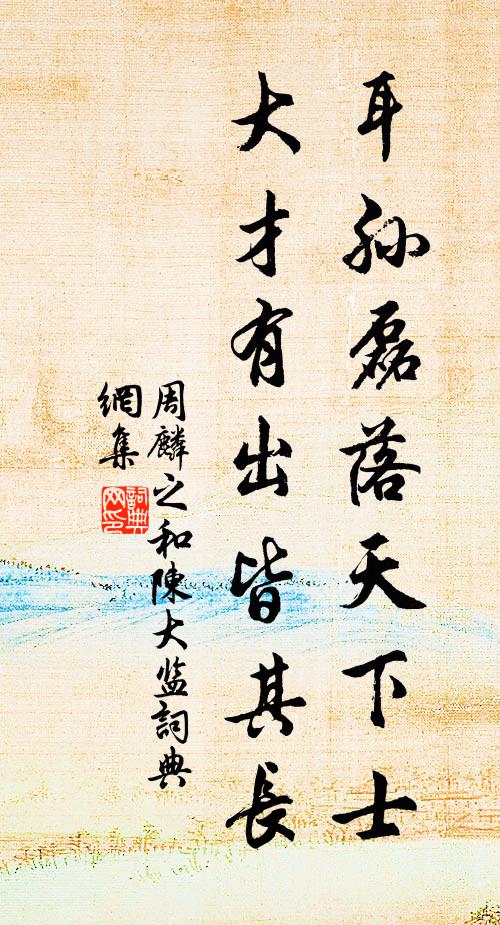 耳孫磊落天下士
大才有出皆其長
周麟之和陳大监詞典
網集
詞典
网印